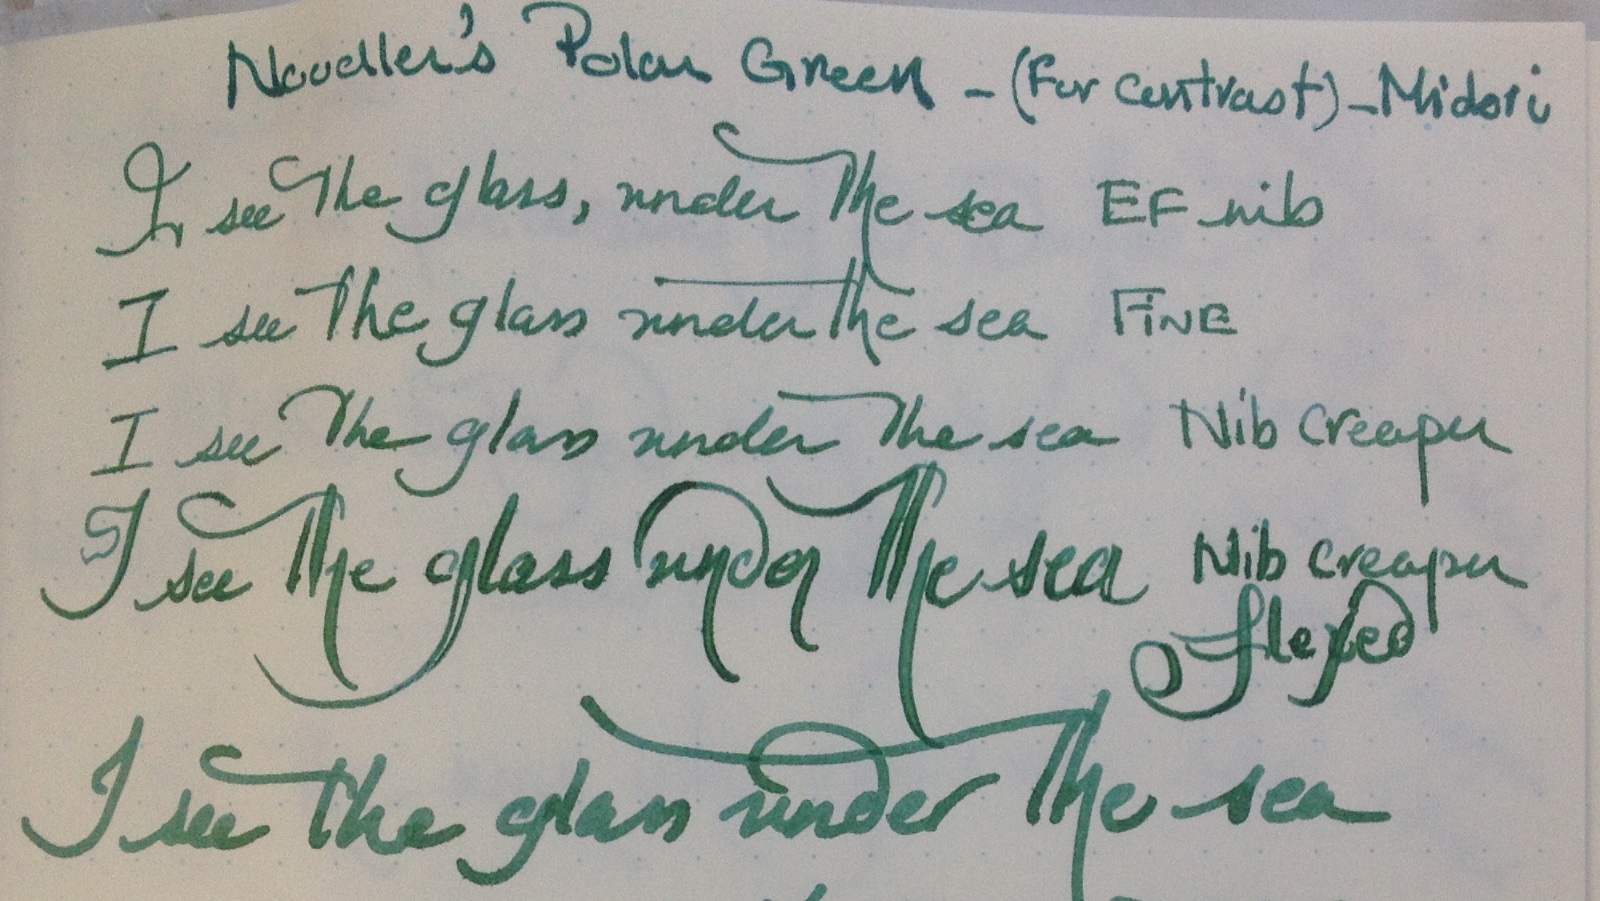 Noodler's Polar Green - (For contrast) - Midori
I see the glass, under the sea EF nib
I see the glass under the sea FINE
I see the glass under the sea Nib Creaper
I see the glass under the sea Nib Creaper
flexed
I see the glass under the sea